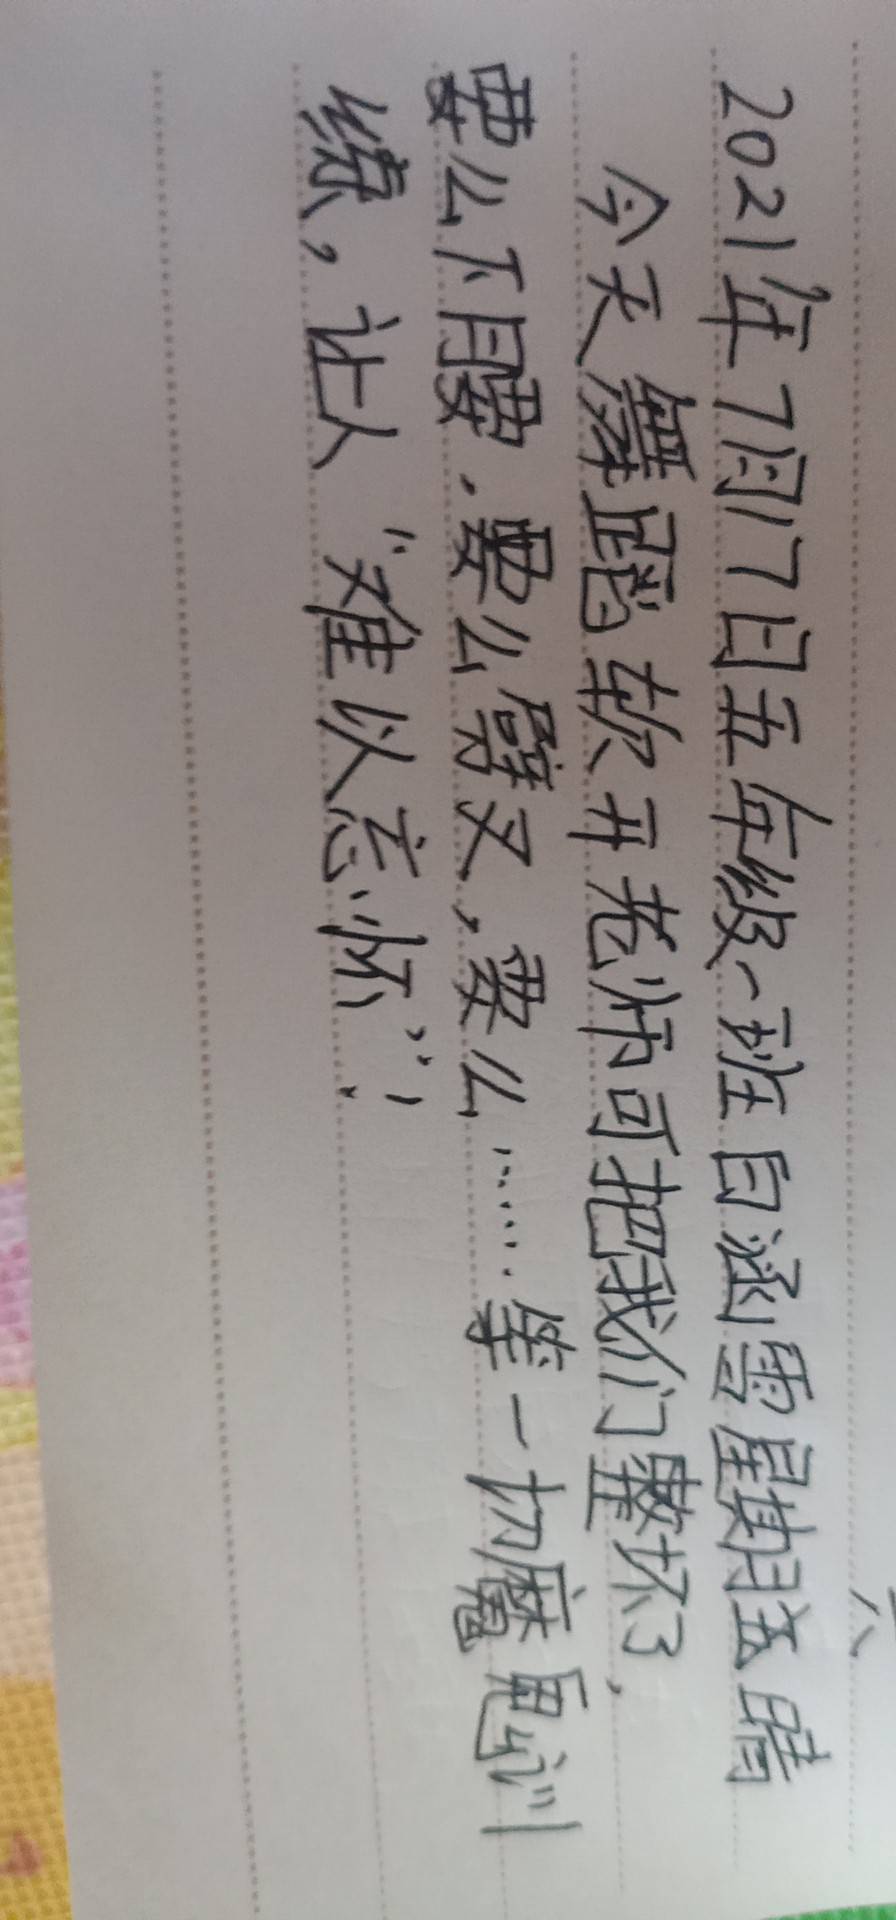 六
2021年7月17日五年级一班白涵雪星期五晴
今天舞蹈软开老师可把我们整坏了,
要么下腰,要么劈叉,要么……等一切魔鬼训
练,让人“难以忘怀”!